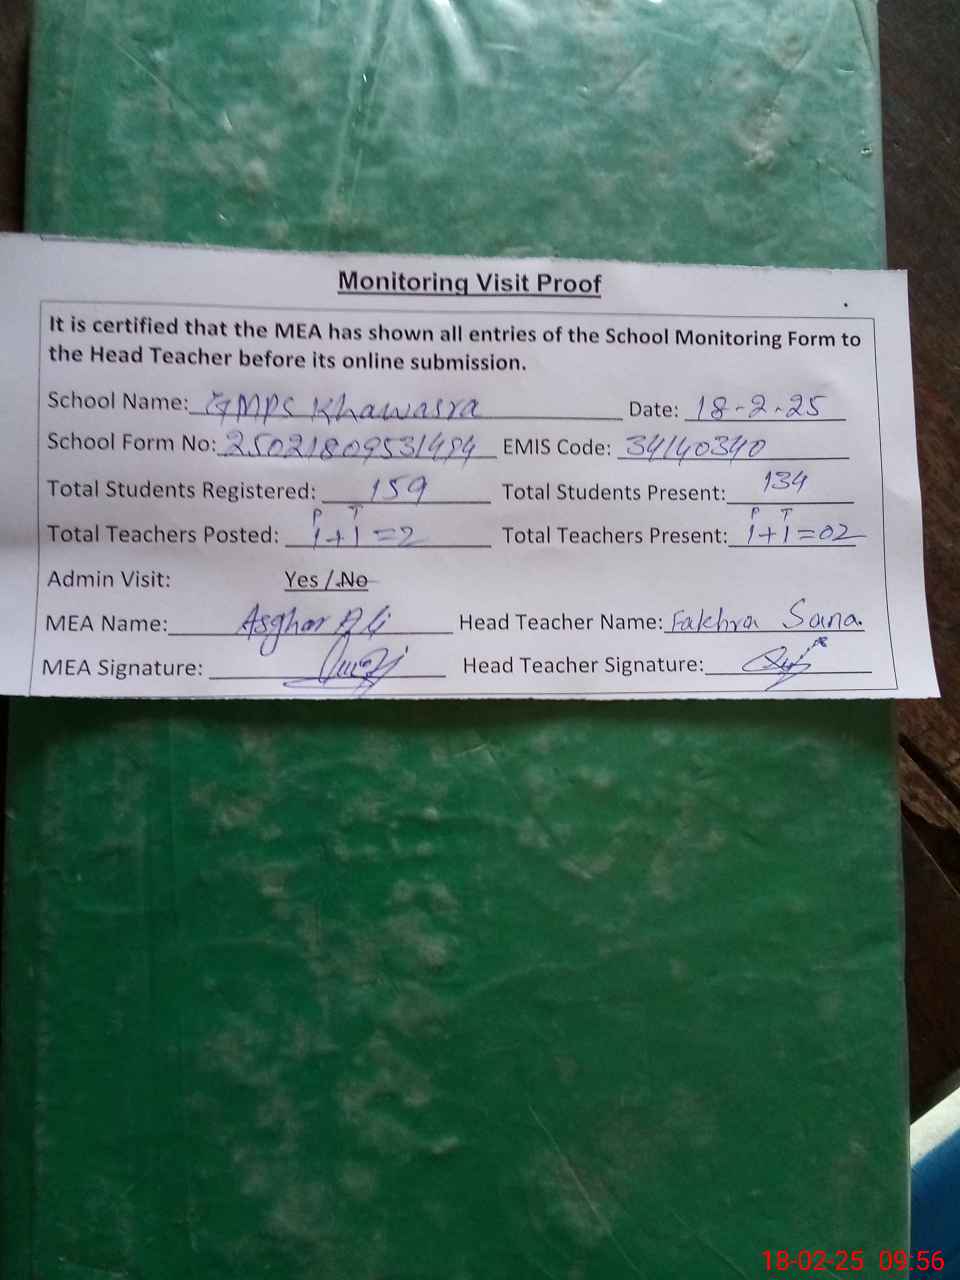 Monitoring Visit Proof
It is certified that the MEA has shown all entries of the School Monitoring Form to
the Head Teacher before its online submission.
School Name: GMPS Khawasra Date: 18-2-25
School Form No: 25021809531494 EMIS Code: 34140340
Total Students Registered: 159 Total Students Present: 134
P T P T
Total Teachers Posted: 1+1=2 Total Teachers Present: 1+1=02
Admin Visit: Yes / No
MEA Name: Asghar Ali Head Teacher Name: Fakhra Sana
MEA Signature: Head Teacher Signature:
18-02-25 09:56